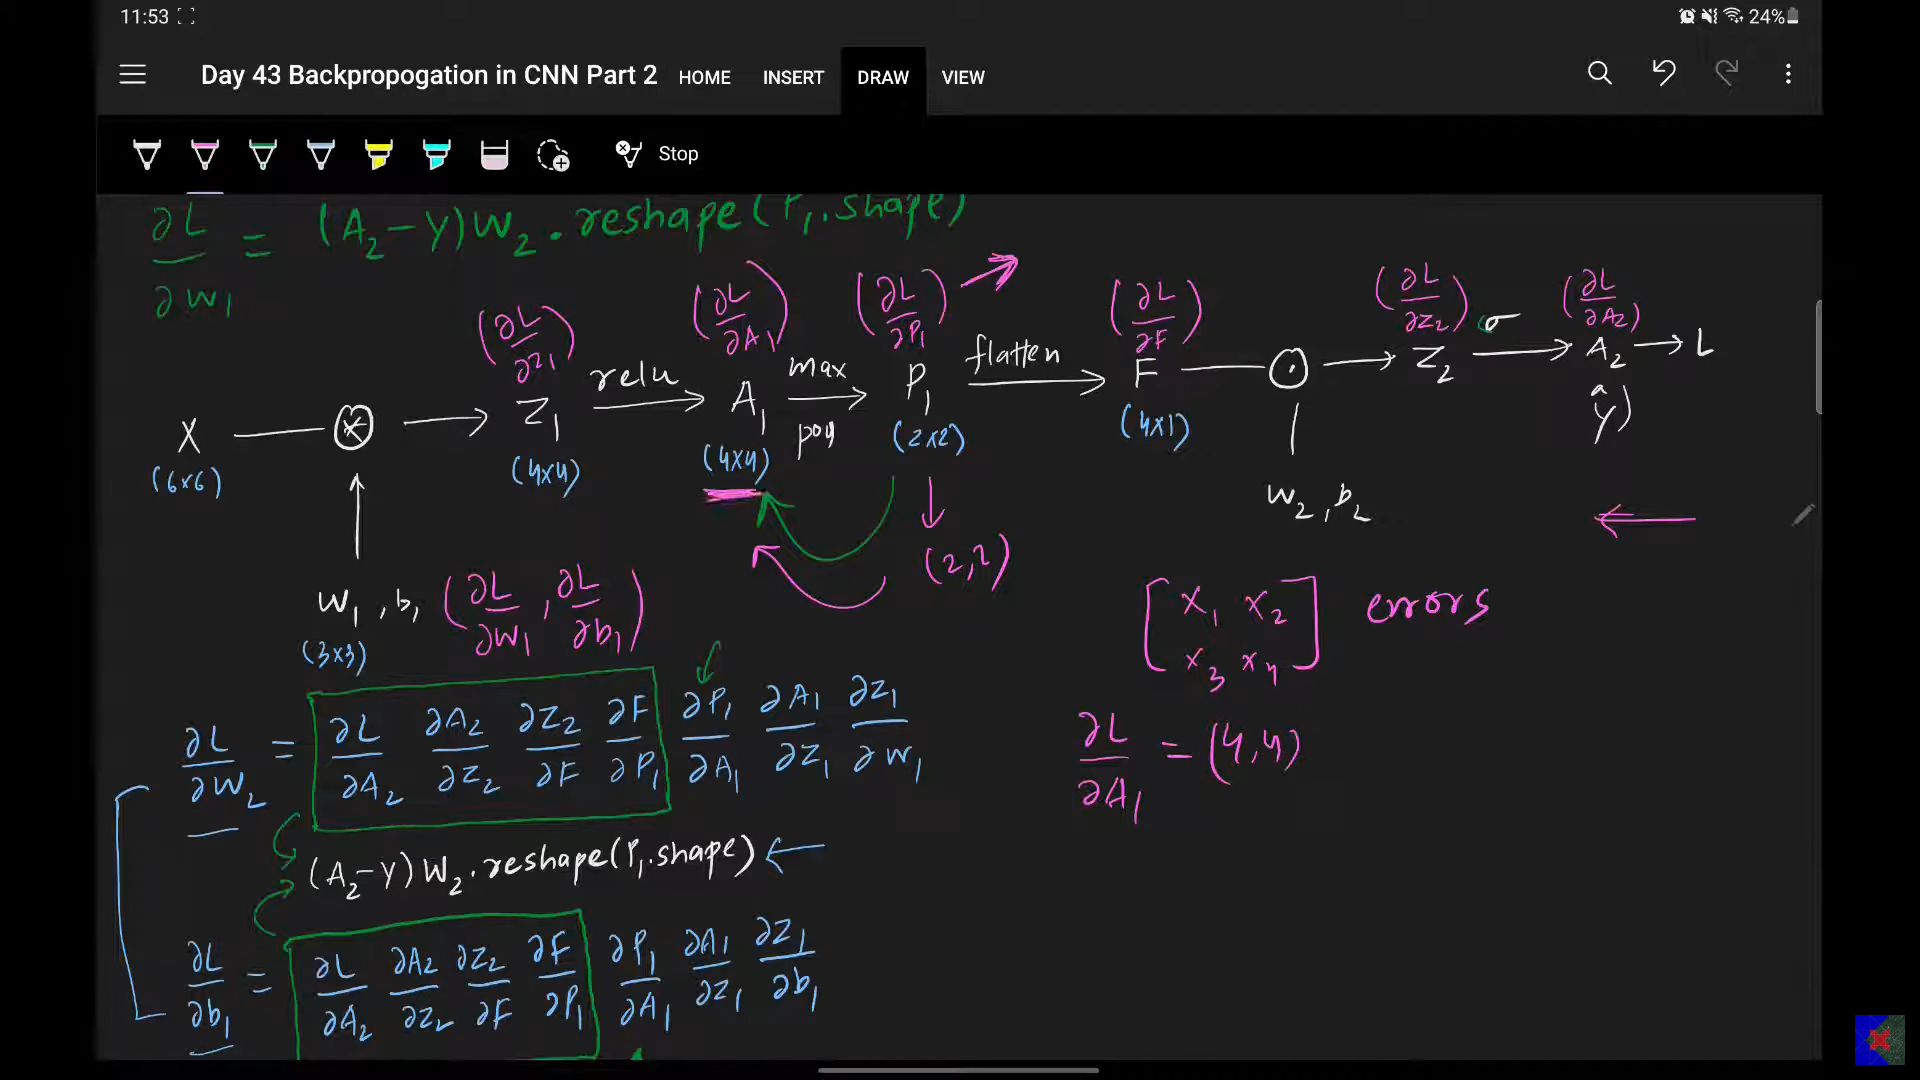 11:53
24%
Day 43 Backpropogation in CNN Part 2 HOME INSERT DRAW VIEW
Stop
∂L/∂W₁ = (A₂-Y)W₂.reshape(P₁.shape)
(∂L/∂Z₁) (∂L/∂A₁) (∂L/∂P₁) (∂L/∂F) (∂L/∂Z₂) σ (∂L/∂A₂)
X Z₁ relu A₁ max P₁ flatten F Z₂ A₂ L
(6x6) (4x4) (4x4) (2x2) (4x1) ŷ)
W₂, b₂
(2,2)
W₁, b₁ (∂L/∂W₁, ∂L/∂b₁)
(3x3)
[x₁ x₂
x₃ x₄] errors
∂L/∂W₂ = ∂L/∂A₂ ∂A₂/∂Z₂ ∂Z₂/∂F ∂F/∂P₁ ∂P₁/∂A₁ ∂A₁/∂Z₁ ∂Z₁/∂W₁
∂L/∂A₁ = (4,4)
(A₂-Y)W₂.reshape(P₁.shape)
∂L/∂b₁ = ∂L/∂A₂ ∂A₂/∂Z₂ ∂Z₂/∂F ∂F/∂P₁ ∂P₁/∂A₁ ∂A₁/∂Z₁ ∂Z₁/∂b₁